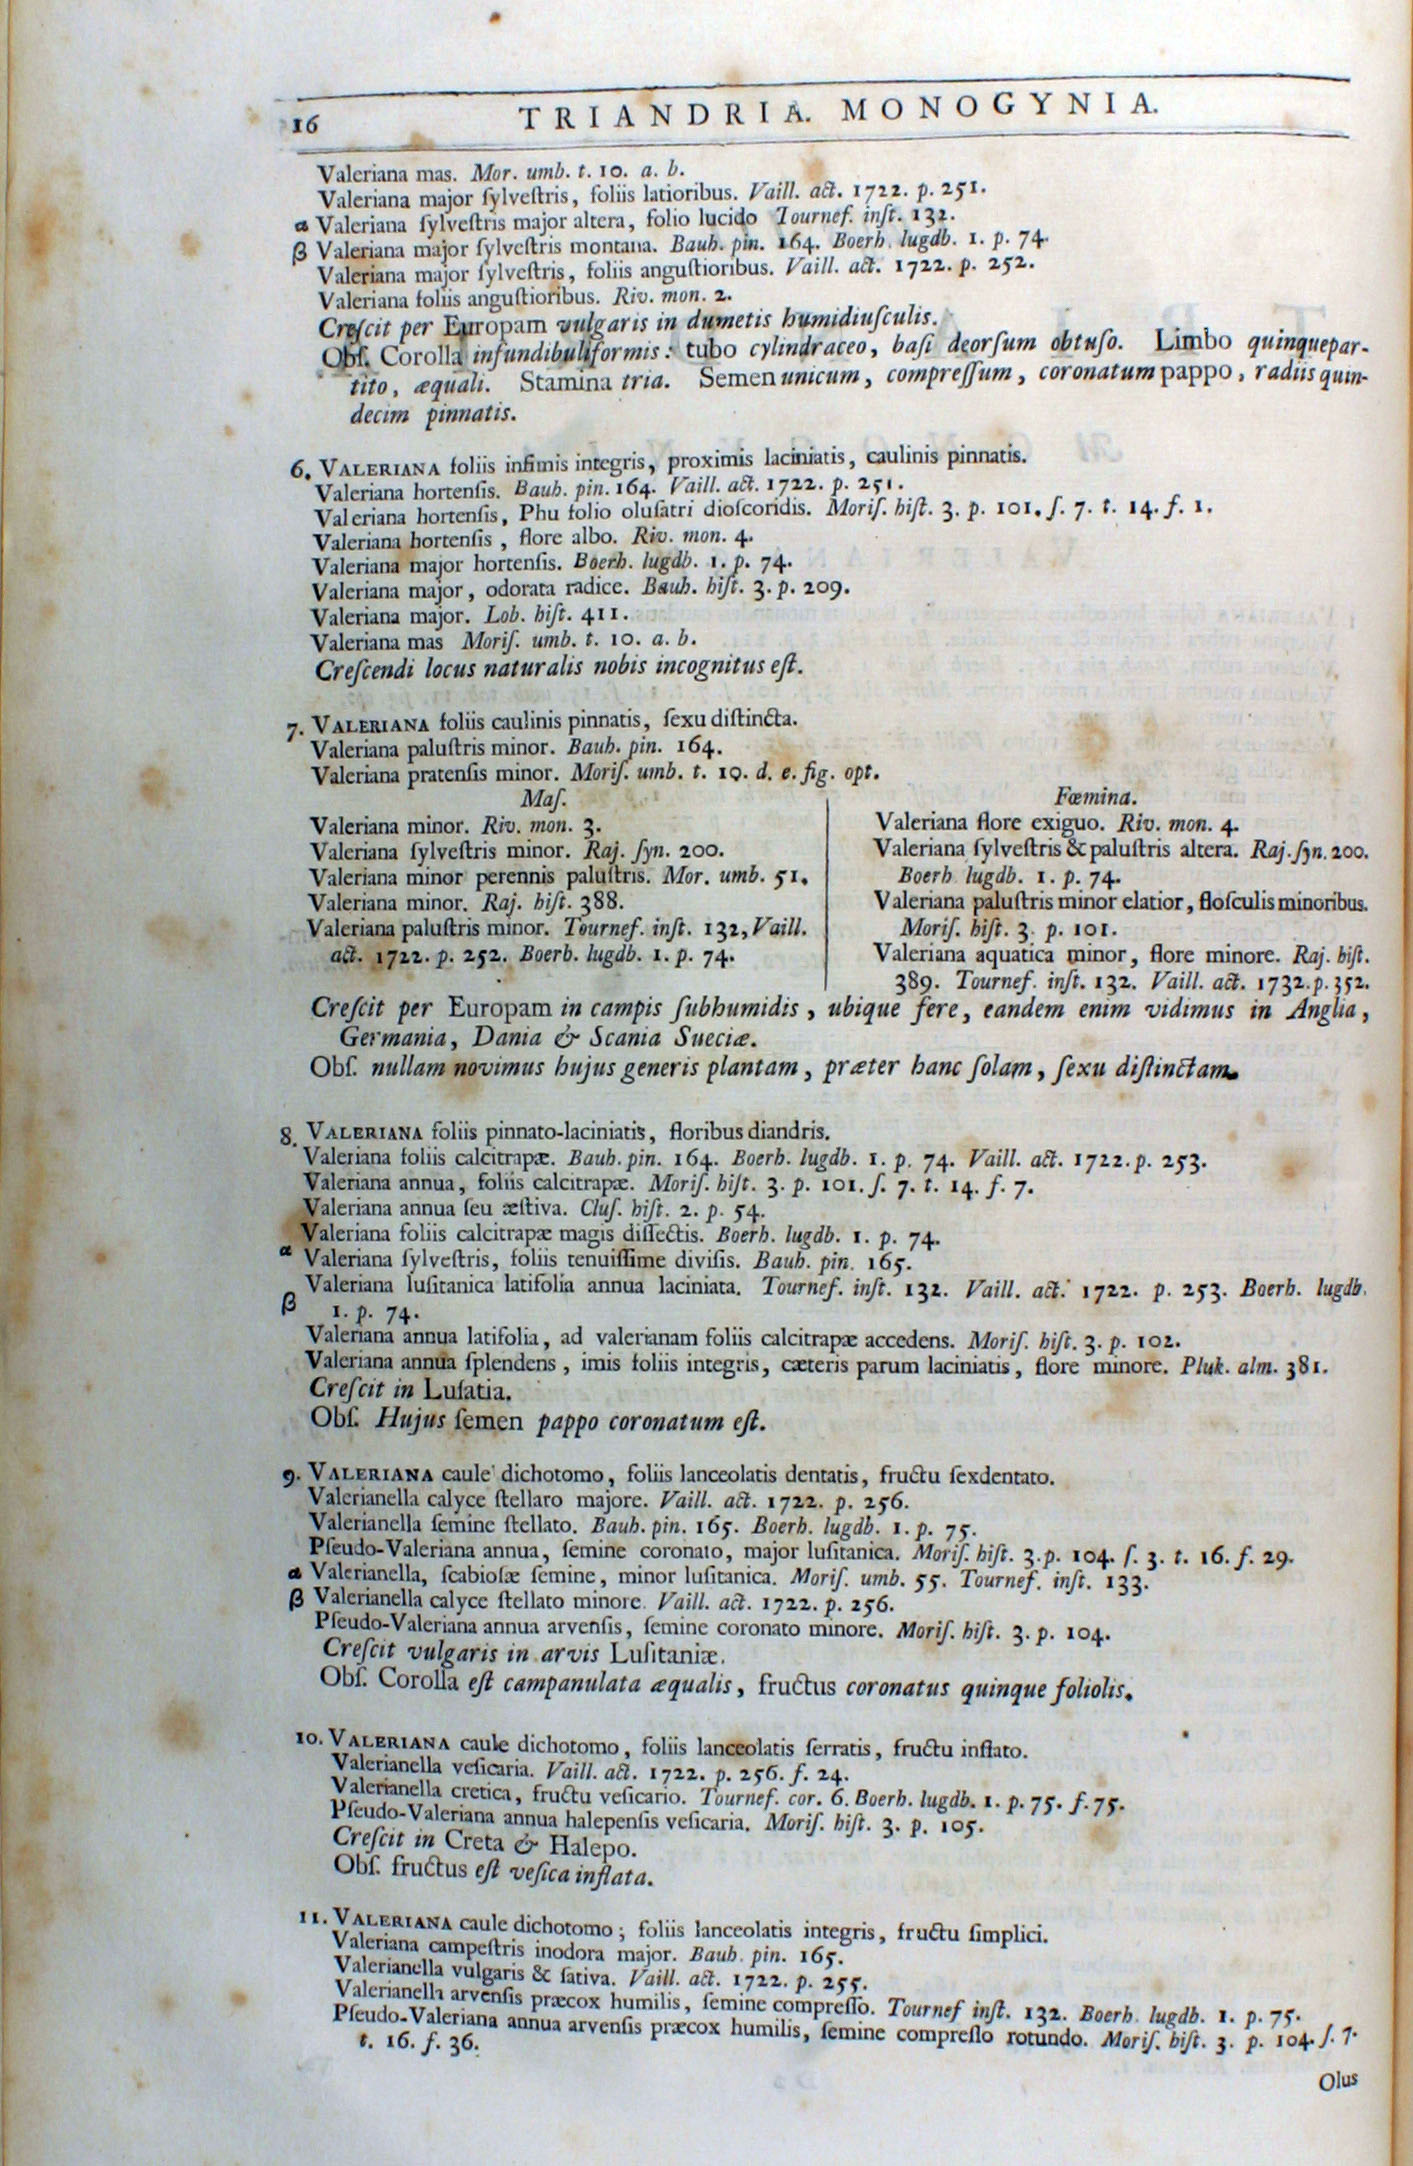 16
TRIANDRIA. MONOGYNIA.
Valeriana mas. Mor. umb. t. 10. a. b.
Valeriana major ſylveſtris, foliis latioribus. Vaill. act. 1722. p. 251.
α Valeriana ſylveſtris major altera, folio lucido Tournef. inſt. 132.
β Valeriana major ſylveſtris montana. Bauh. pin. 164. Boerh. lugdb. 1. p. 74.
Valeriana major ſylveſtris, foliis anguſtioribus. Vaill. act. 1722. p. 252.
Valeriana foliis anguſtioribus. Riv. mon. 2.
Creſcit per Europam vulgaris in dumetis humidiuſculis.
Obſ. Corolla infundibuliformis: tubo cylindraceo, baſi deorſum obtuſo. Limbo quinquepar-
tito, æquali. Stamina tria. Semen unicum, compreſſum, coronatum pappo, radiis quin-
decim pinnatis.
6. VALERIANA foliis infimis integris, proximis laciniatis, caulinis pinnatis.
Valeriana hortenſis. Bauh. pin. 164. Vaill. act. 1722. p. 251.
Valeriana hortenſis, Phu folio oluſatri dioſcoridis. Moriſ. hiſt. 3. p. 101. ſ. 7. t. 14. f. 1.
Valeriana hortenſis, flore albo. Riv. mon. 4.
Valeriana major hortenſis. Boerh. lugdb. 1. p. 74.
Valeriana major, odorata radice. Bauh. hiſt. 3. p. 209.
Valeriana major. Lob. hiſt. 411.
Valeriana mas Moriſ. umb. t. 10. a. b.
Creſcendi locus naturalis nobis incognitus eſt.
7. VALERIANA foliis caulinis pinnatis, ſexu diſtincta.
Valeriana paluſtris minor. Bauh. pin. 164.
Valeriana pratenſis minor. Moriſ. umb. t. 10. d. e. fig. opt.
Maſ.
Valeriana minor. Riv. mon. 3.
Valeriana ſylveſtris minor. Raj. ſyn. 200.
Valeriana minor perennis paluſtris. Mor. umb. 51.
Valeriana minor. Raj. hiſt. 388.
Valeriana paluſtris minor. Tournef. inſt. 132, Vaill.
act. 1722. p. 252. Boerh. lugdb. 1. p. 74.
Fœmina.
Valeriana flore exiguo. Riv. mon. 4.
Valeriana ſylveſtris & paluſtris altera. Raj. ſyn. 200.
Boerh lugdb. 1. p. 74.
Valeriana paluſtris minor elatior, floſculis minoribus.
Moriſ. hiſt. 3. p. 101.
Valeriana aquatica minor, flore minore. Raj. hiſt.
389. Tournef. inſt. 132. Vaill. act. 1732. p. 352.
Creſcit per Europam in campis ſubhumidis, ubique fere, eandem enim vidimus in Anglia,
Germania, Dania & Scania Sueciæ.
Obſ. nullam novimus hujus generis plantam, præter hanc ſolam, ſexu diſtinctam.
8. VALERIANA foliis pinnato-laciniatis, floribus diandris.
Valeriana foliis calcitrapæ. Bauh. pin. 164. Boerh. lugdb. 1. p. 74. Vaill. act. 1722. p. 253.
Valeriana annua, foliis calcitrapæ. Moriſ. hiſt. 3. p. 101. ſ. 7. t. 14. f. 7.
Valeriana annua ſeu æſtiva. Cluſ. hiſt. 2. p. 54.
Valeriana foliis calcitrapæ magis diſſectis. Boerh. lugdb. 1. p. 74.
α Valeriana ſylveſtris, foliis tenuiſſime diviſis. Bauh. pin. 165.
Valeriana luſitanica latifolia annua laciniata. Tournef. inſt. 132. Vaill. act. 1722. p. 253. Boerh. lugdb.
β 1. p. 74.
Valeriana annua latifolia, ad valerianam foliis calcitrapæ accedens. Moriſ. hiſt. 3. p. 102.
Valeriana annua ſplendens, imis foliis integris, cæteris parum laciniatis, flore minore. Pluk. alm. 381.
Creſcit in Luſatia.
Obſ. Hujus ſemen pappo coronatum eſt.
9. VALERIANA caule dichotomo, foliis lanceolatis dentatis, fructu ſexdentato.
Valerianella calyce ſtellaro majore. Vaill. act. 1722. p. 256.
Valerianella ſemine ſtellato. Bauh. pin. 165. Boerh. lugdb. 1. p. 75.
Pſeudo-Valeriana annua, ſemine coronato, major luſitanica. Moriſ. hiſt. 3. p. 104. ſ. 3. t. 16. f. 29.
α Valerianella, ſcabioſæ ſemine, minor luſitanica. Moriſ. umb. 55. Tournef. inſt. 133.
β Valerianella calyce ſtellato minore. Vaill. act. 1722. p. 256.
Pſeudo-Valeriana annua arvenſis, ſemine coronato minore. Moriſ. hiſt. 3. p. 104.
Creſcit vulgaris in arvis Luſitaniæ.
Obſ. Corolla eſt campanulata æqualis, fructus coronatus quinque foliolis.
10. VALERIANA caule dichotomo, foliis lanceolatis ſerratis, fructu inflato.
Valerianella veſicaria. Vaill. act. 1722. p. 256. f. 24.
Valerianella cretica, fructu veſicario. Tournef. cor. 6. Boerh. lugdb. 1. p. 75. f. 75.
Pſeudo-Valeriana annua halepenſis veſicaria. Moriſ. hiſt. 3. p. 105.
Creſcit in Creta & Halepo.
Obſ. fructus eſt veſica inflata.
11. VALERIANA caule dichotomo; foliis lanceolatis integris, fructu ſimplici.
Valeriana campeſtris inodora major. Bauh. pin. 165.
Valerianella vulgaris & ſativa. Vaill. act. 1722. p. 255.
Valerianella arvenſis præcox humilis, ſemine compreſſo. Tournef inſt. 132. Boerh. lugdb. 1. p. 75.
Pſeudo-Valeriana annua arvenſis præcox humilis, ſemine compreſſo rotundo. Moriſ. hiſt. 3. p. 104. ſ. 7.
t. 16. f. 36.
Olus